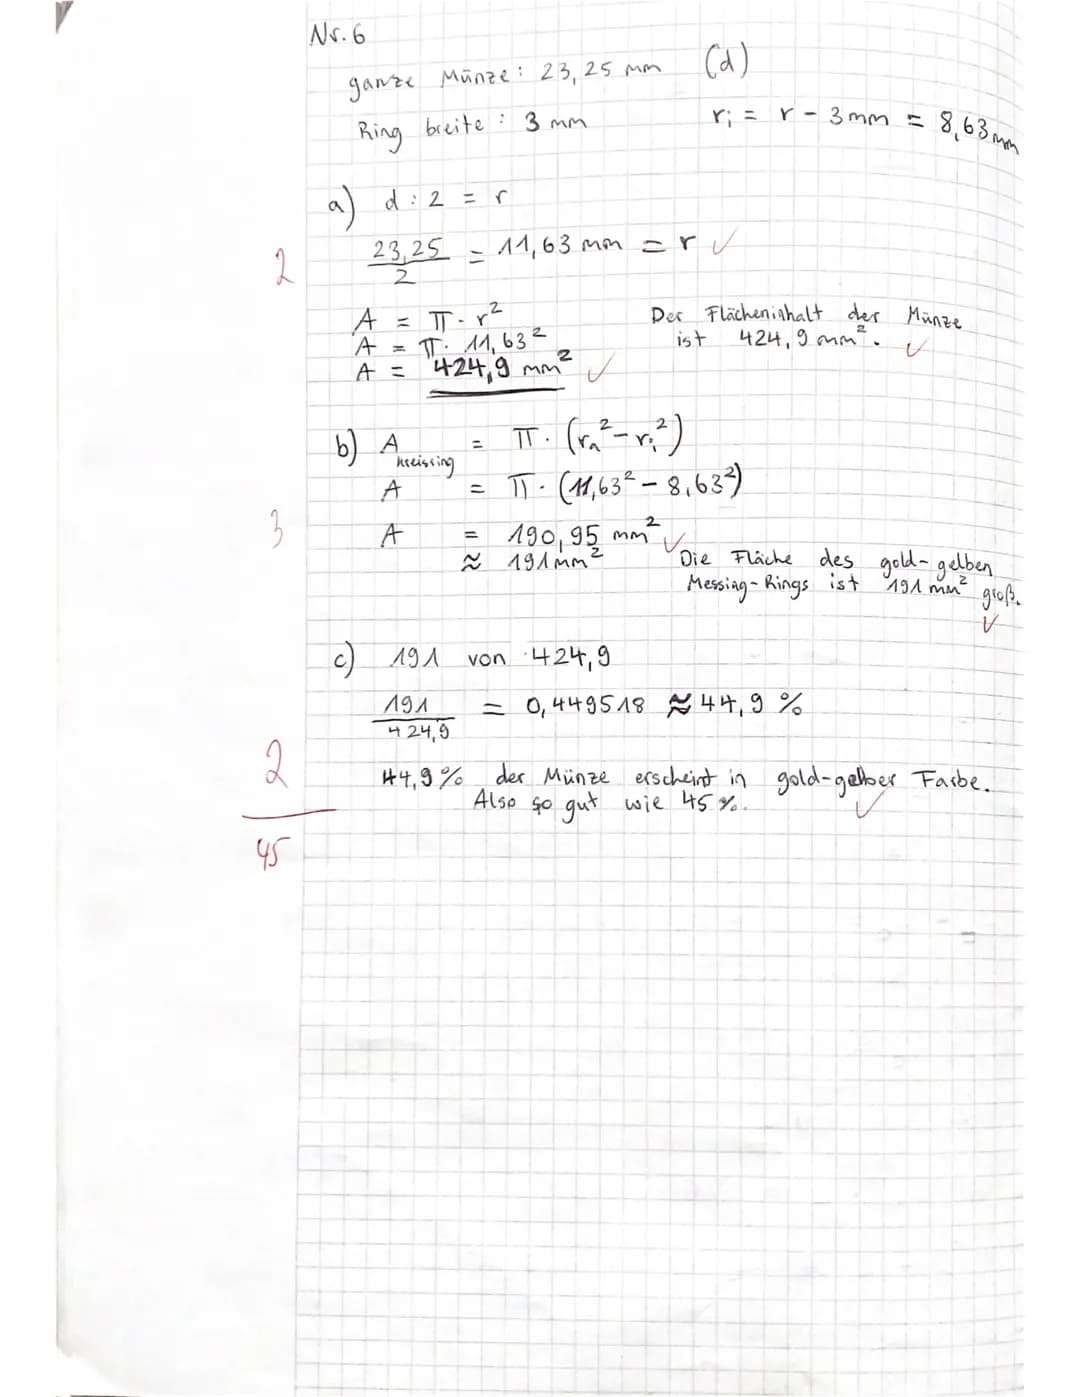 Nr. 6
ganze Münze: 23,25 mm (d)
Ring breite : 3 mm
rᵢ = r - 3 mm = 8,63 mm
a) d : 2 = r
23,25/2 = 11,63 mm = r ✓
2
A = π · r²
A = π · 11,63²
A = 424,9 mm² ✓
Der Flächeninhalt der Münze
ist 424,9 mm². ✓
b) A Kreisring = π · (rₐ² - rᵢ²)
A = π · (11,63² - 8,63²)
3
A = 190,95 mm² ✓
≈ 191 mm²
Die Fläche des gold-gelben
Messing-Rings ist 191 mm² groß.
✓
c) 191 von 424,9
191/424,9 = 0,449518 ≈ 44,9 %
2
44,9 % der Münze erscheint in gold-gelber Farbe.
Also so gut wie 45 %. ✓
45